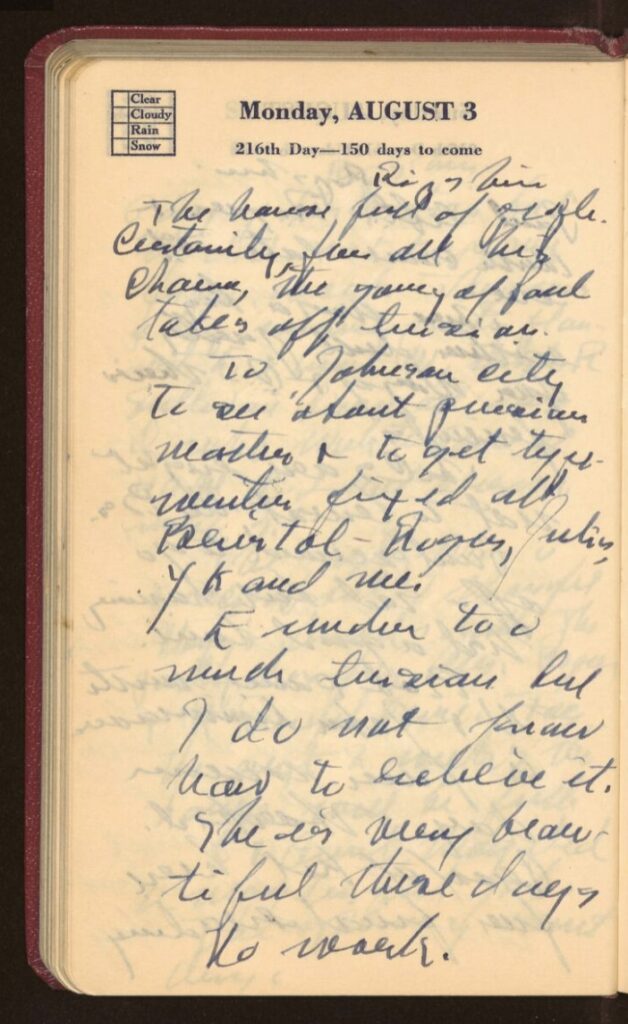 Clear
Cloudy
Rain
Snow
Monday, AUGUST 3
216th Day—150 days to come
Ripshin
The house full of people.
Certainly, for all his
charm, the going of Paul
takes off tension.
To Johnson City
to see about
matter & to get type-
writer fixed at
Bristol - Roger, Julius,
YK and me.
E under too
much tension but
I do not know
how to relieve it.
She is very beau-
tiful these days
No work.